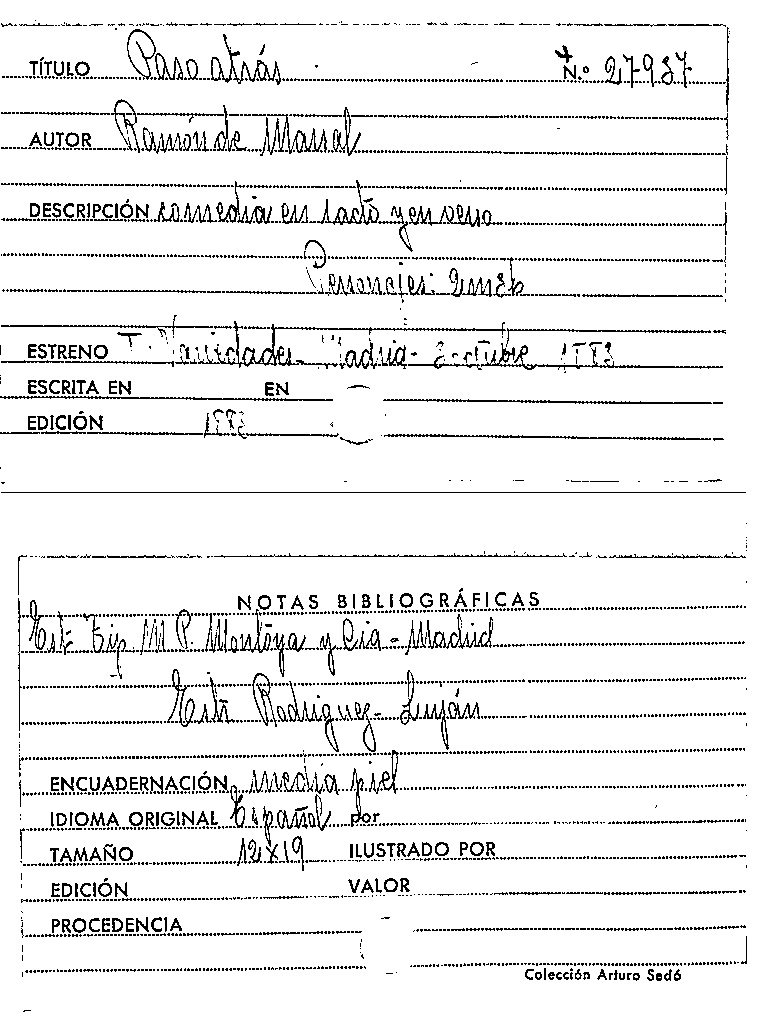 TÍTULO Paso atrás N.º 27-937
AUTOR Ramón de Marsal
DESCRIPCIÓN comedia en 1 acto y en verso
Personajes: 2m 3h
ESTRENO T. Variedades - Madrid - 3 octubre 1883
ESCRITA EN EN
EDICIÓN 1883
NOTAS BIBLIOGRÁFICAS
Est. Tip. M. P. Montoya y Cia - Madrid
Edit Rodriguez - Luján
ENCUADERNACIÓN media piel
IDIOMA ORIGINAL Español por
TAMAÑO 12x19 ILUSTRADO POR
EDICIÓN VALOR
PROCEDENCIA
Colección Arturo Sedó